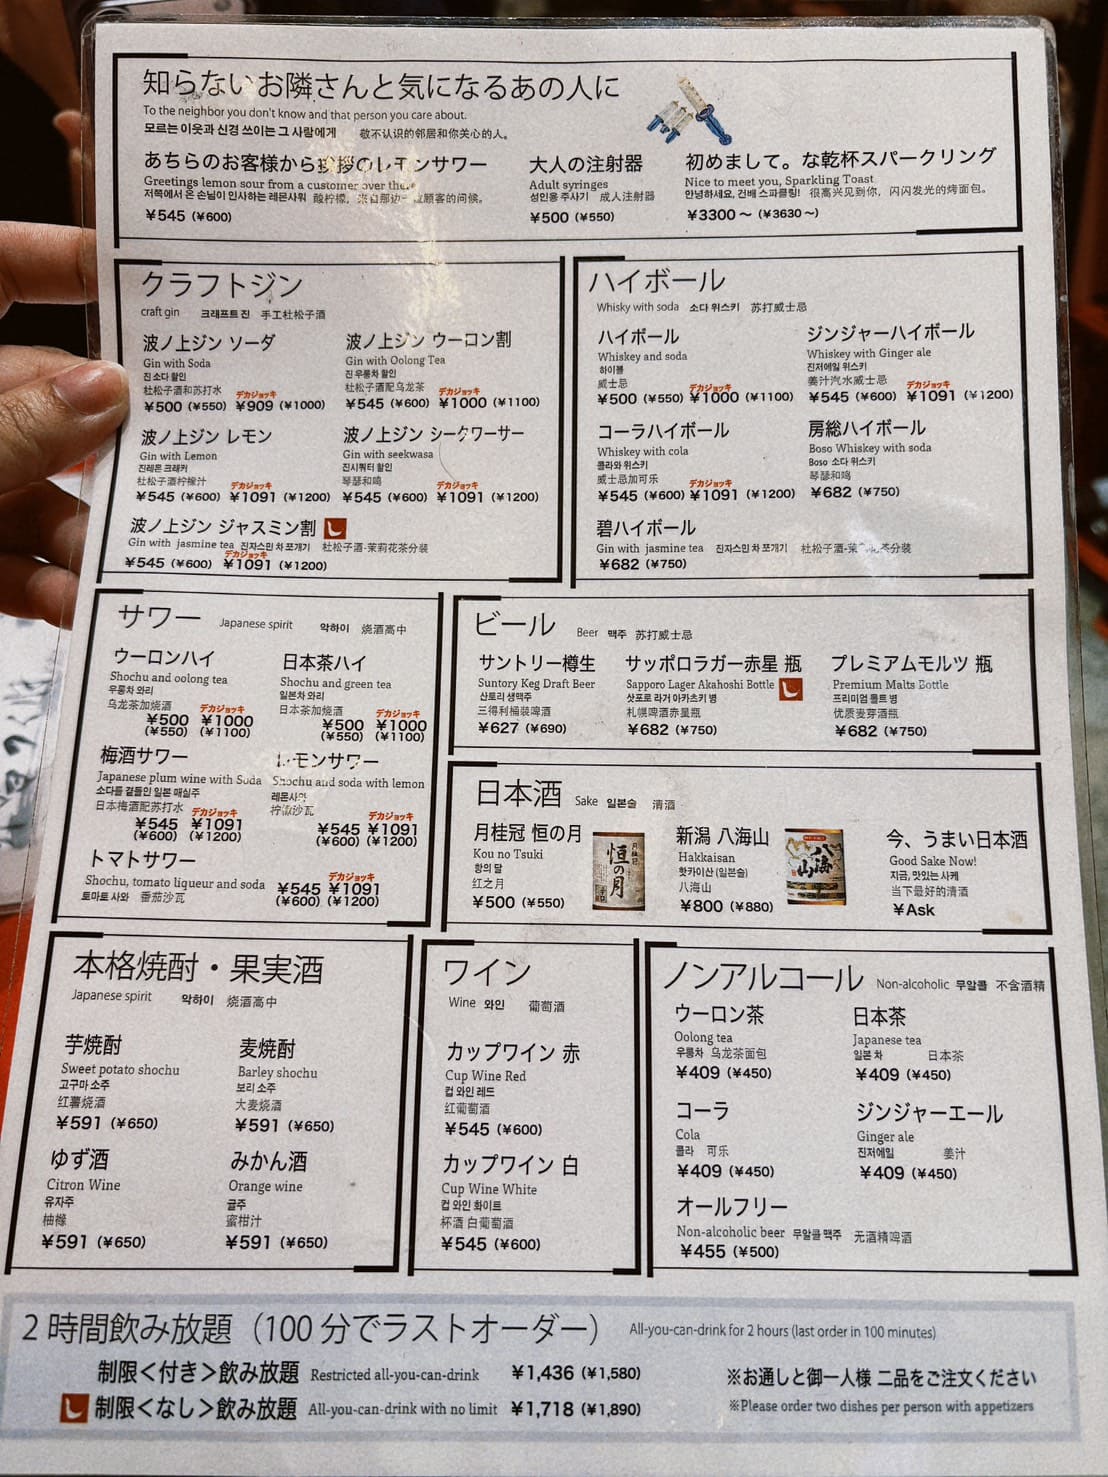 知らないお隣さんと気になるあの人に
To the neighbor you don't know and that person you care about.
모르는 이웃과 신경 쓰이는 그 사람에게 敬不认识的邻居和你关心的人。
あちらのお客様から挨拶のレモンサワー
Greetings lemon sour from a customer over there
저쪽에서 온 손님이 인사하는 레몬사워 酸柠檬，来自那边一位顾客的问候。
¥545 (¥600)
大人の注射器
Adult syringes
성인용 주사기 成人注射器
¥500 (¥550)
初めまして。な乾杯スパークリング
Nice to meet you, Sparkling Toast
안녕하세요, 건배 스파클링! 很高兴见到你，闪闪发光的烤面包。
¥3300～ (¥3630～)
クラフトジン
craft gin 크래프트 진 手工杜松子酒
波ノ上ジン ソーダ
Gin with Soda
진 소다 할인
杜松子酒和苏打水
デカジョッキ
¥500 (¥550) ¥909 (¥1000)
波ノ上ジン ウーロン割
Gin with Oolong Tea
진 우롱차 할인
杜松子酒配乌龙茶
デカジョッキ
¥545 (¥600) ¥1000 (¥1100)
波ノ上ジン レモン
Gin with Lemon
진레몬 크래커
杜松子酒柠檬汁
デカジョッキ
¥545 (¥600) ¥1091 (¥1200)
波ノ上ジン シークワーサー
Gin with seekwasa
진시쿼터 할인
琴瑟和鸣
デカジョッキ
¥545 (¥600) ¥1091 (¥1200)
波ノ上ジン ジャスミン割 し
Gin with jasmine tea 진자스민 차 쪼개기 杜松子酒-茉莉花茶分装
デカジョッキ
¥545 (¥600) ¥1091 (¥1200)
ハイボール
Whisky with soda 소다 위스키 苏打威士忌
ハイボール
Whiskey and soda
하이볼
威士忌
デカジョッキ
¥500 (¥550) ¥1000 (¥1100)
ジンジャーハイボール
Whiskey with Ginger ale
진저에일 위스키
姜汁汽水威士忌
デカジョッキ
¥545 (¥600) ¥1091 (¥1200)
コーラハイボール
Whiskey with cola
콜라와 위스키
威士忌加可乐
デカジョッキ
¥545 (¥600) ¥1091 (¥1200)
房総ハイボール
Boso Whiskey with soda
Boso 소다 위스키
琴瑟和鸣
¥682 (¥750)
碧ハイボール
Gin with jasmine tea 진자스민 차 쪼개기 杜松子酒-茉莉花茶分装
¥682 (¥750)
サワー Japanese spirit 악하이 烧酒高中
ウーロンハイ
Shochu and oolong tea
우롱차 와리
乌龙茶加烧酒
デカジョッキ
¥500 ¥1000
(¥550) (¥1100)
日本茶ハイ
Shochu and green tea
일본차 와리
日本茶加烧酒
デカジョッキ
¥500 ¥1000
(¥550) (¥1100)
梅酒サワー
Japanese plum wine with Soda
소다를 곁들인 일본 매실주
日本梅酒配苏打水
デカジョッキ
¥545 ¥1091
(¥600) (¥1200)
レモンサワー
Shochu and soda with lemon
레몬사와
柠檬沙瓦
デカジョッキ
¥545 ¥1091
(¥600) (¥1200)
トマトサワー
Shochu, tomato liqueur and soda
토마토 사와 番茄沙瓦
デカジョッキ
¥545 ¥1091
(¥600) (¥1200)
ビール Beer 맥주 苏打威士忌
サントリー樽生
Suntory Keg Draft Beer
산토리 생맥주
三得利桶装啤酒
¥627 (¥690)
サッポロラガー赤星 瓶
Sapporo Lager Akahoshi Bottle し
삿포로 라거 아카츠키 병
札幌啤酒赤星瓶
¥682 (¥750)
プレミアムモルツ 瓶
Premium Malts Bottle
프리미엄 몰트 병
优质麦芽酒瓶
¥682 (¥750)
日本酒 Sake 일본술 清酒
月桂冠 恒の月
Kou no Tsuki
항의 달
红之月
¥500 (¥550)
月桂冠
恒の月
新潟 八海山
Hakkaisan
핫카이산 (일본술)
八海山
¥800 (¥880)
八海山
今、うまい日本酒
Good Sake Now!
지금, 맛있는 사케
当下最好的清酒
¥Ask
本格焼酎・果実酒
Japanese spirit 악하이 烧酒高中
芋焼酎
Sweet potato shochu
고구마 소주
红薯烧酒
¥591 (¥650)
麦焼酎
Barley shochu
보리 소주
大麦烧酒
¥591 (¥650)
ゆず酒
Citron Wine
유자주
柚橼
¥591 (¥650)
みかん酒
Orange wine
귤주
蜜柑汁
¥591 (¥650)
ワイン
Wine 와인 葡萄酒
カップワイン 赤
Cup Wine Red
컵 와인 레드
红葡萄酒
¥545 (¥600)
カップワイン 白
Cup Wine White
컵 와인 화이트
杯酒 白葡萄酒
¥545 (¥600)
ノンアルコール Non-alcoholic 무알콜 不含酒精
ウーロン茶
Oolong tea
우롱차 乌龙茶面包
¥409 (¥450)
日本茶
Japanese tea
일본 차 日本茶
¥409 (¥450)
コーラ
Cola
콜라 可乐
¥409 (¥450)
ジンジャーエール
Ginger ale
진저에일 姜汁
¥409 (¥450)
オールフリー
Non-alcoholic beer 무알콜 맥주 无酒精啤酒
¥455 (¥500)
2時間飲み放題（100分でラストオーダー） All-you-can-drink for 2 hours (last order in 100 minutes)
制限＜付き＞飲み放題 Restricted all-you-can-drink ¥1,436 (¥1,580)
し 制限＜なし＞飲み放題 All-you-can-drink with no limit ¥1,718 (¥1,890)
※お通しと御一人様 二品をご注文ください
※Please order two dishes per person with appetizers